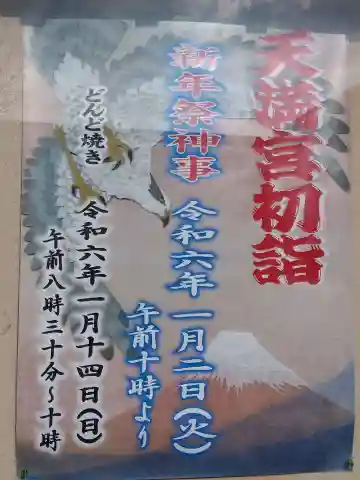 天満宮初詣
新年祭神事 令和六年 一月二日(火)
午前十時より
どんど焼き 令和六年一月十四日(日)
午前八時三十分~十時